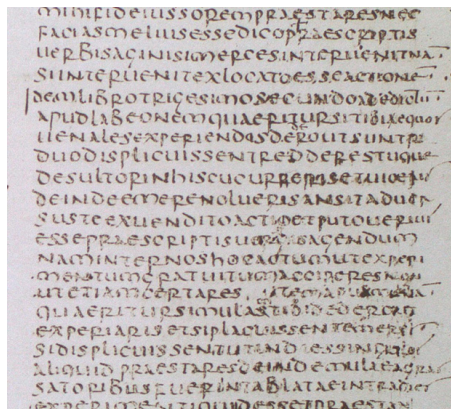 MIHIFIDEIUSSOREMPRAESTARESNEC
FACIASMELIUSESSEDICOPRAESCRIPTIS
UERBISAGINISIMERCESINTERUENITNA
SIINTERUENITEXLOCATOESSEACTIONE
IDEMLIBROTRICESIMOSECUNDOADEDICTU
APUDLABEONEMQUAERITURSITIBIAEQUOS
UENALESEXPERIENDOSDEDEROUTSIINTRI
DUODISPLICUISSENTREDDERESTUQUE
DESULTORINHISCUCURRERISETUICERI
DEINDEEMERENOLUERISANSITADUER
SUSTEEXUENDITOACTIOETPUTOUERIU
ESSEPRAESCRIPTISUERBISAGENDUM
NAMINTERNOSHOCACTUMUTEXPERI
MENTUMGRATUITUMACCIPERESNON
UTETIAMCERTARES ITEMAPUDMELA
QUAERITURSIMULASTIBIDEDEROUT
EXPERIARISETSIPLACUISSENTEMERES
SIDISPLICUISSENTUTINDIESSINGULOS
ALIQUIDPRAESTARESDEINDEMULAEAGRAS
SATORIBUSFUERINTABLATAEINTRADIES
EXPERIMENTIQUIDESSETPRAESTAN